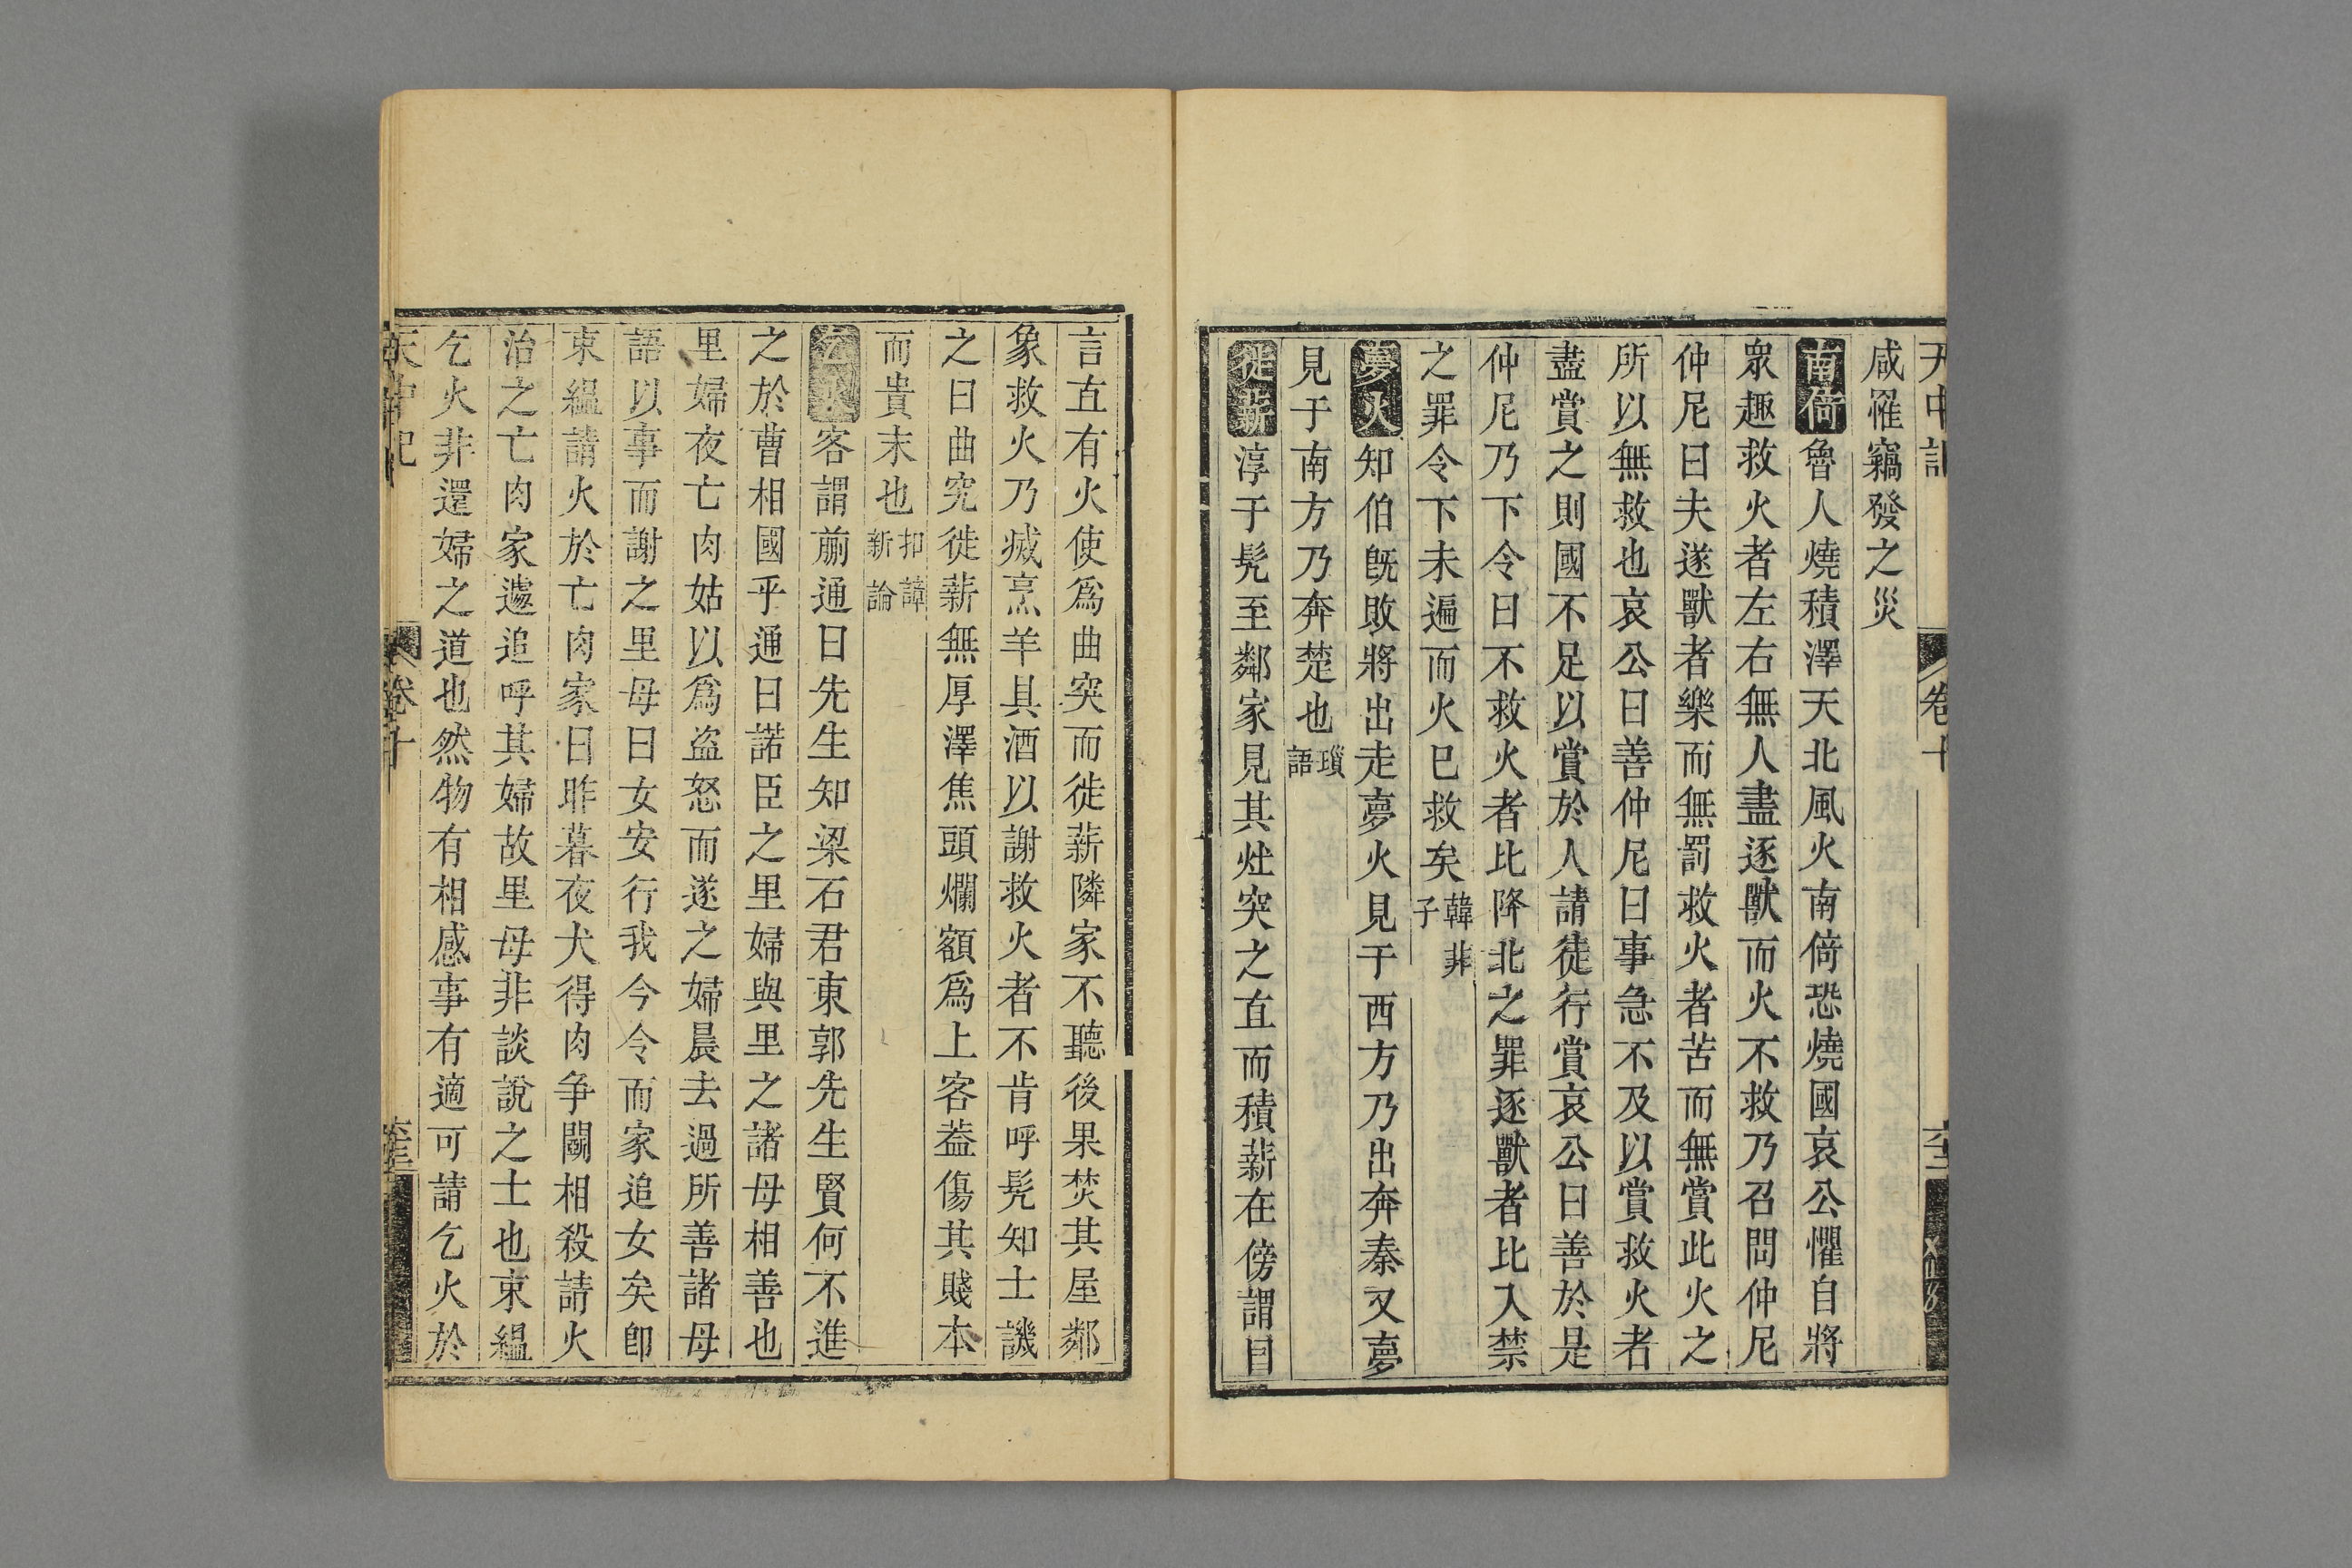 天中記 卷十
咸罹竊發之災
南倚魯人燒積澤天北風火南倚恐燒國哀公懼自將
眾趣救火者左右無人盡逐獸而火不救乃召問仲尼
仲尼曰夫逐獸者樂而無罰救火者苦而無賞此火之
所以無救也哀公曰善仲尼曰事急不及以賞救火者
盡賞之則國不足以賞於人請徒行賞哀公曰善於是
仲尼乃下令曰不救火者比降北之罪逐獸者比入禁
之罪令下未遍而火巳救矣韓非子
夢火知伯旣敗將出走夢火見于西方乃出奔秦又夢
見于南方乃奔楚也瑣語
徙薪淳于髡至鄰家見其灶突之直而積薪在傍謂曰
言直有火使爲曲突而徙薪隣家不聽後果焚其屋鄰
象救火乃㓕烹羊具酒以謝救火者不肯呼髡知士譏
之曰曲突徙薪無厚澤焦頭爛額爲上客葢傷其賤本
而貴末也桓譚新論
乞火客謂蒯通曰先生知梁石君東郭先生賢何不進
之於曹相國乎通曰諾臣之里婦與里之諸母相善也
里婦夜亡肉姑以爲盜怒而遂之婦晨去過所善諸母
語以事而謝之里母曰女安行我今令而家追女矣卽
束緼請火於亡肉家曰昨暮夜犬得肉争鬬相殺請火
治之亡肉家遽追呼其婦故里母非談說之士也束緼
乞火非還婦之道也然物有相感事有適可請乞火於
天中記 卷十